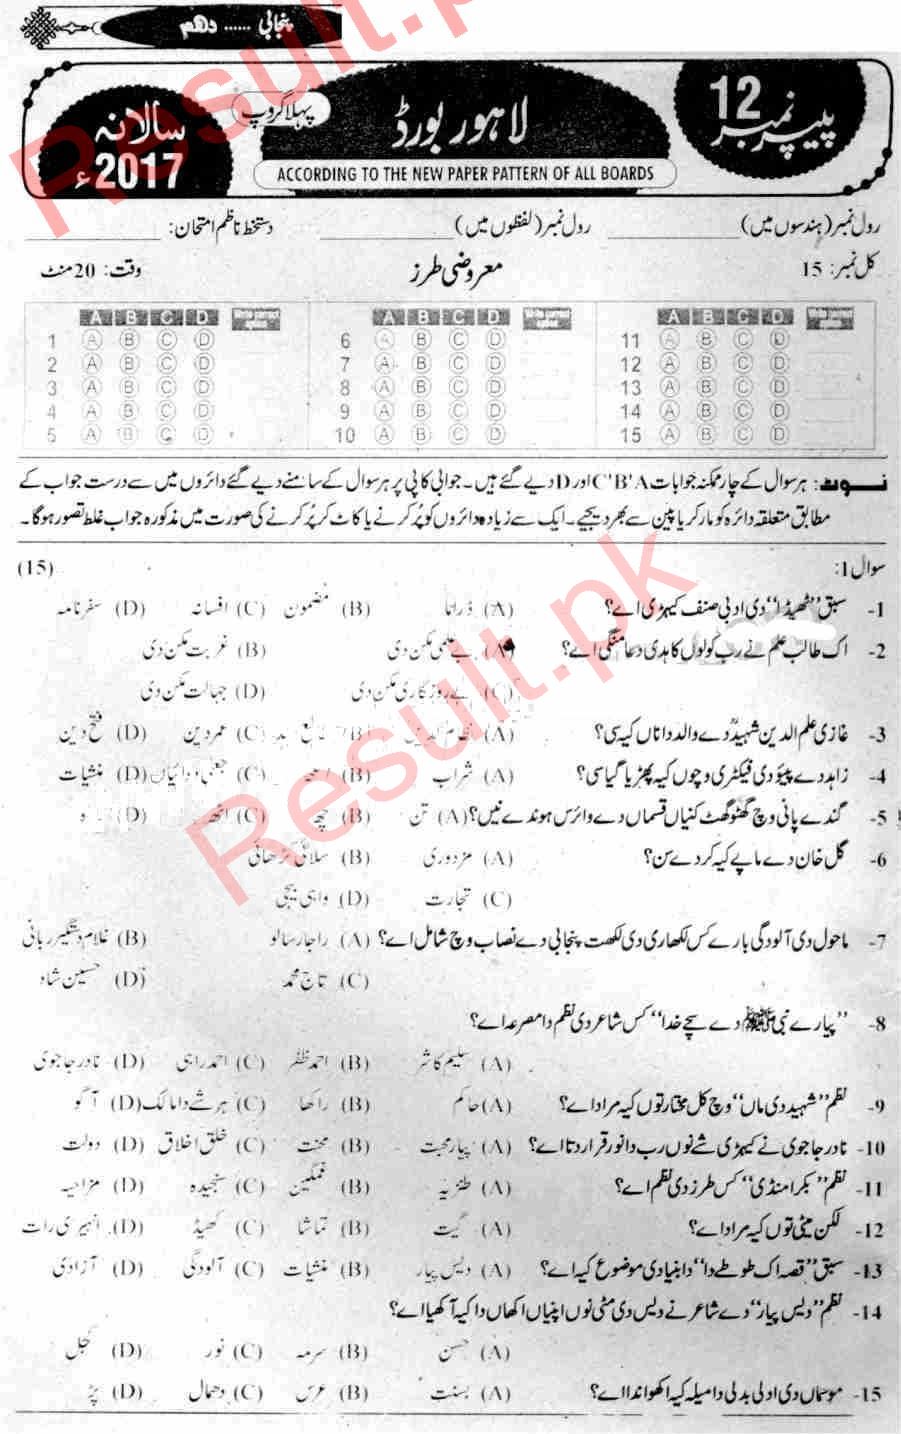 پنجابی ...... دہم
پیپر نمبر 12
لاہور بورڈ
پہلا گروپ
سالانہ 2017ء
ACCORDING TO THE NEW PAPER PATTERN OF ALL BOARDS
رول نمبر (ہندسوں میں) __________ رول نمبر (لفظوں میں) __________ دستخط ناظم امتحان: __________
کل نمبر: 15 معروضی طرز وقت: 20 منٹ
A B C D Write correct option A B C D Write correct option A B C D Write correct option
1 A B C D 6 A B C D 11 A B C D
2 A B C D 7 A B C D 12 A B C D
3 A B C D 8 A B C D 13 A B C D
4 A B C D 9 A B C D 14 A B C D
5 A B C D 10 A B C D 15 A B C D
نوٹ: ہر سوال کے چار ممکنہ جوابات A'B'C اور D دیے گئے ہیں۔ جوابی کاپی پر ہر سوال کے سامنے دیے گئے دائروں میں سے درست جواب کے
مطابق متعلقہ دائرہ کو مارکر یا پین سے بھر دیجیے۔ ایک سے زیادہ دائروں کو پُر کرنے یا کاٹ کر پُر کرنے کی صورت میں مذکورہ جواب غلط تصور ہوگا۔
سوال 1: (15)
1- سبق ”ٹھیڈا“ دی ادبی صنف کیہڑی اے؟ (A) ڈراما (B) مضمون (C) افسانہ (D) سفرنامہ
2- اک طالب علم نے رب کولوں کاہدی دعا منگی اے؟ (A) بے علمی مکن دی (B) غربت مکن دی
(C) بے روزگاری مکن دی (D) جہالت مکن دی
3- غازی علم الدین شہیدؒ دے والد دا ناں کیہ سی؟ (A) نظام الدین (B) طالع مند (C) عمر دین (D) فتح دین
4- زاہد دے پیؤ دی فیکٹری وچوں کیہ پھڑیا گیا سی؟ (A) شراب (B) (C) جعلی دوائیاں (D) منشیات
5- گندے پانی وچ گھٹو گھٹ کنیاں قسماں دے وائرس ہوندے نیں؟ (A) تن (B) چھ (C) اٹھ (D)
6- گل خان دے ماپے کیہ کردے سن؟ (A) مزدوری (B) سلائی کڑھائی
(C) تجارت (D) واہی بیجی
7- ماحول دی آلودگی بارے کس لکھاری دی لکھت پنجابی دے نصاب وچ شامل اے؟ (A) راجا رسالو (B) غلام دستگیر ربانی
(C) تاج محمد (D) حسین شاد
8- ”پیارے نبیﷺ دے سچے خدا“ کس شاعر دی نظم دا مصرعہ اے؟
(A) سلیم کاشر (B) احمد ظفر (C) احمد راہی (D) نادر جاجوی
9- نظم ”شہید دی ماں“ وچ کل مختار توں کیہ مراد اے؟ (A) حاکم (B) راکھا (C) ہر شے دا مالک (D) آگو
10- نادر جاجوی نے کیہڑی شے نوں رب دا نور قرار دتا اے؟ (A) پیار محبت (B) محنت (C) خلق اخلاق (D) دولت
11- نظم ”بکرا منڈی“ کس طرز دی نظم اے؟ (A) طنزیہ (B) غمگین (C) سنجیدہ (D) مزاحیہ
12- لکن میٹی توں کیہ مراد اے؟ (A) گیت (B) تماشا (C) کھیڈ (D) انہیری رات
13- سبق ”قصہ اک طوطے دا“ دا بنیادی موضوع کیہ اے؟ (A) دیس پیار (B) منشیات (C) آلودگی (D) آزادی
14- نظم ”دیس پیار“ دے شاعر نے دیس دی مٹی نوں اپنیاں اکھاں دا کیہ آکھیا اے؟
(A) حسن (B) سرمہ (C) نور (D) کجل
15- موسماں دی ادلی بدلی دا میلہ کیہ اکھواندا اے؟ (A) بسنت (B) عرس (C) دھمال (D) پڑ
Result.pk
Result.pk